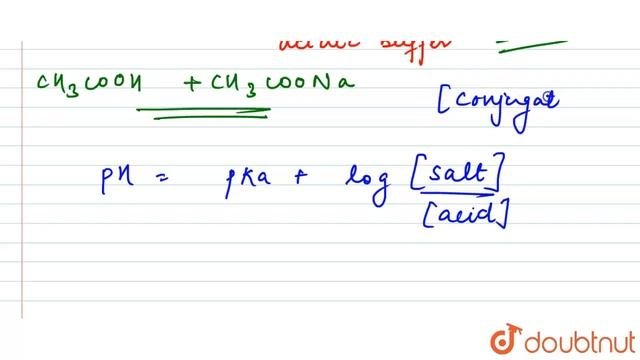 acidic buffer
CH3COOH + CH3COONa
[Conjugat
pH = pKa + log [salt]
[acid]
doubtnut